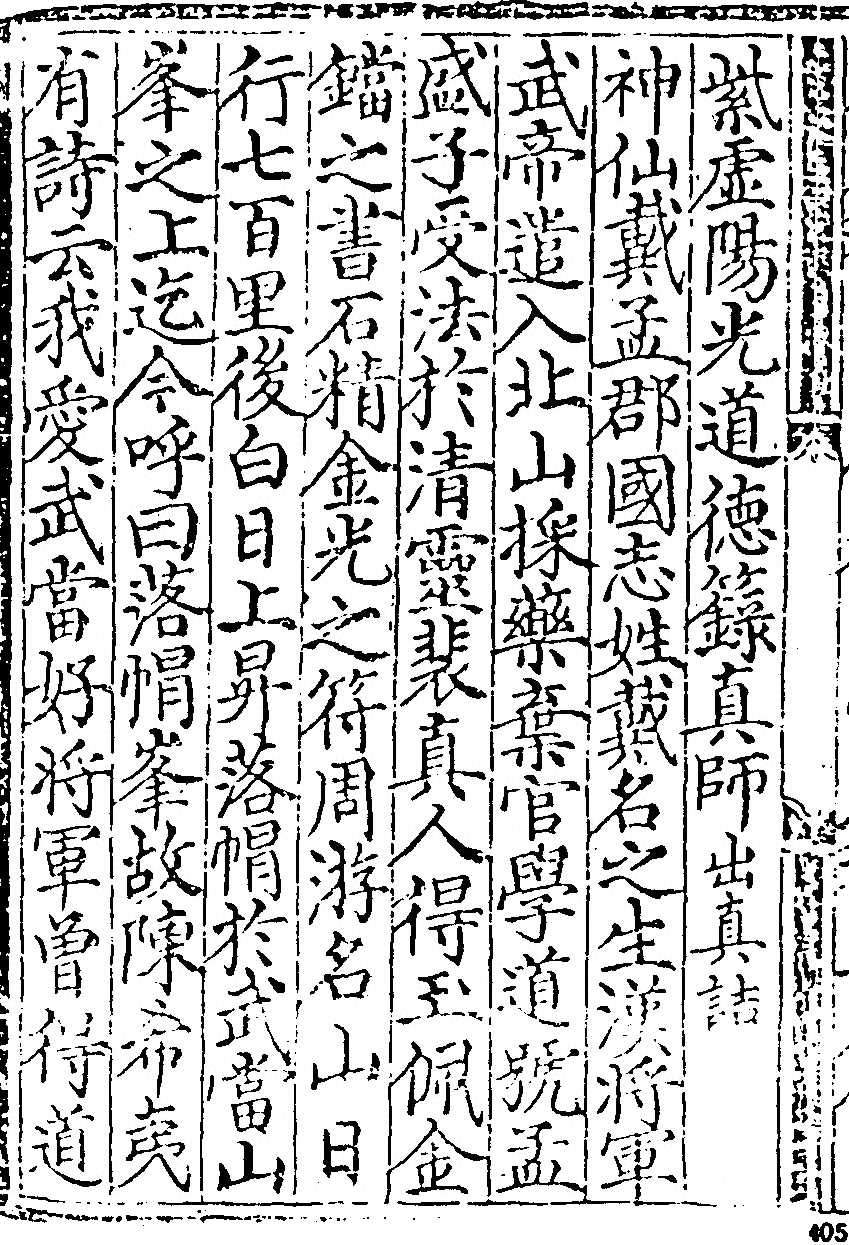 紫虛陽光道德籙真師出真誥
神仙戴孟郡國志姓戴名之生漢將軍
武帝遣入北山採藥棄官學道號孟
盛子受法於清靈裴真人得玉佩金
鐺之書石精金光之符周游名山日
行七百里後白日上昇落帽於武當山
峯之上迄今呼曰落帽峯故陳希夷
有詩云我愛武當好將軍曾得道
405